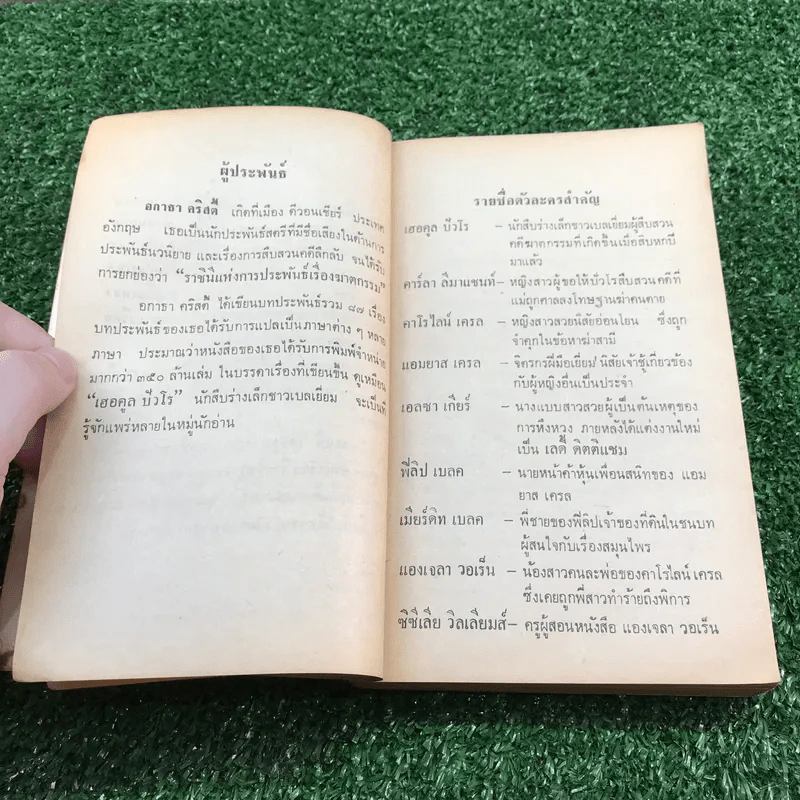 ผู้ประพันธ์
อกาธา คริสตี้ เกิดที่เมือง ดีวอนเชียร์ ประเทศ
อังกฤษ เธอเป็นนักประพันธ์สตรีที่มีชื่อเสียงในด้านการ
ประพันธ์นวนิยาย และเรื่องการสืบสวนคดีลึกลับ จนได้รับ
การยกย่องว่า “ราชินีแห่งการประพันธ์เรื่องฆาตกรรม”
อกาธา คริสตี้ ได้เขียนบทประพันธ์รวม ๘๗ เรื่อง
บทประพันธ์ของเธอได้รับการแปลเป็นภาษาต่าง ๆ หลาย
ภาษา ประมาณว่าหนังสือของเธอได้รับการพิมพ์จำหน่าย
มากกว่า ๓๕๐ ล้านเล่ม ในบรรดาเรื่องที่เขียนขึ้น ดูเหมือน
“เฮอคูล ปัวโร” นักสืบร่างเล็กชาวเบลเยี่ยม จะเป็นที่
รู้จักแพร่หลายในหมู่นักอ่าน
รายชื่อตัวละครสำคัญ
เฮอคูล ปัวโร – นักสืบร่างเล็กชาวเบลเยี่ยมผู้สืบสวน
คดีฆาตกรรมที่เกิดขึ้นเมื่อสิบหกปี
มาแล้ว
คาร์ลา ลีมานชนท์ – หญิงสาวผู้ขอให้ปัวโรสืบสวนคดีที่
แม่ถูกศาลลงโทษฐานฆ่าคนตาย
คาโรไลน์ เครล – หญิงสาวสวยนิสัยอ่อนโยน ซึ่งถูก
จำคุกในข้อหาฆ่าสามี
แอมยาส เครล – จิตรกรฝีมือเยี่ยม นิสัยเจ้าชู้เกี่ยวข้อง
กับผู้หญิงอื่นเป็นประจำ
เอลซา เกียร์ – นางแบบสาวสวยผู้เป็นต้นเหตุของ
การหึงหวง ภายหลังได้แต่งงานใหม่
เป็น เลดี้ ดิตติแชม
ฟิลิป เบลค – นายหน้าค้าหุ้นเพื่อนสนิทของ แอม
ยาส เครล
เมียร์ดิท เบลค – พี่ชายของฟิลิปเจ้าของที่ดินในชนบท
ผู้สนใจกับเรื่องสมุนไพร
แองเจลา วอเร็น – น้องสาวคนละพ่อของคาโรไลน์ เครล
ซึ่งเคยถูกพี่สาวทำร้ายถึงพิการ
ซีซีเลีย วิลเลียมส์ – ครูผู้สอนหนังสือ แองเจลา วอเร็น